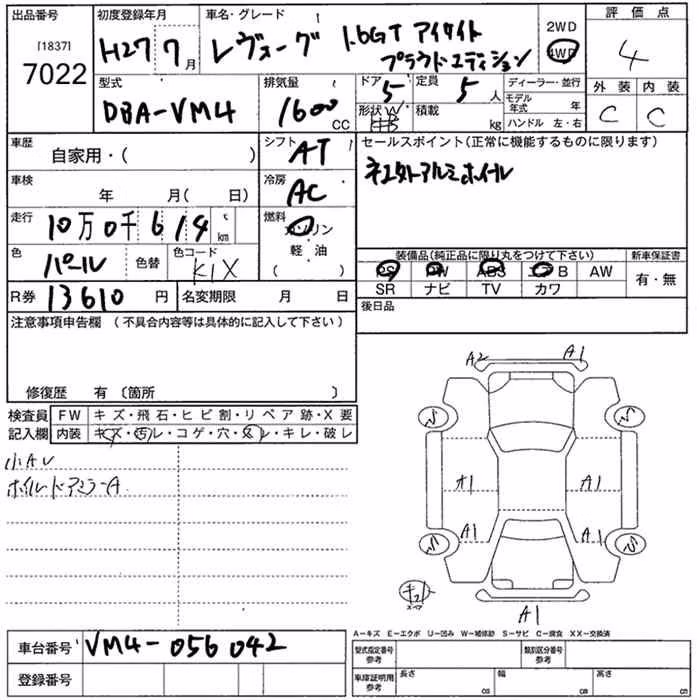 出品番号
[1837]
7022
初度登録年月
H27 7月
車名・グレード
レヴォーグ 1.6GT アイサイト
プラウドエディション
2WD
4WD
評価点
4
型式
DBA-VM4
排気量
1600 CC
ドア 5
形状
定員 5 人
積載 kg
ディーラー・並行
モデル年式 年
ハンドル 左・右
外装 内装
C C
車歴
自家用・( )
シフト AT
セールスポイント(正常に機能するものに限ります)
社外アルミホイル
車検
年 月( 日)
冷房 AC
走行
10万0千614 km
燃料
ガソリン
軽・油
( )
色
パール
色替
色コード
K1X
装備品(純正品に限り丸をつけて下さい)
PS PW ABS エアB AW
SR ナビ TV カワ
新車保証書
有・無
R券 13610円
名変期限 月 日
後日品
注意事項申告欄(不具合内容等は具体的に記入して下さい)
修復歴 有〔箇所 〕
検査員
記入欄
FW キズ・飛石・ヒビ割・リペア跡・X要
内装 キズ・汚レ・コゲ・穴・スレ・キレ・破レ
小AU
ホイル ドアミラーA
A2 A1
A1 A1
A1 A1
A1
A-キズ E-エクボ U-凹み W-補修跡 S-サビ C-腐食 XX-交換済
車台番号 VM4-056042
登録番号
型式指定番号
参考
類別区分番号
参考
車庫証明用
参考
長さ cm
幅 cm
高さ cm